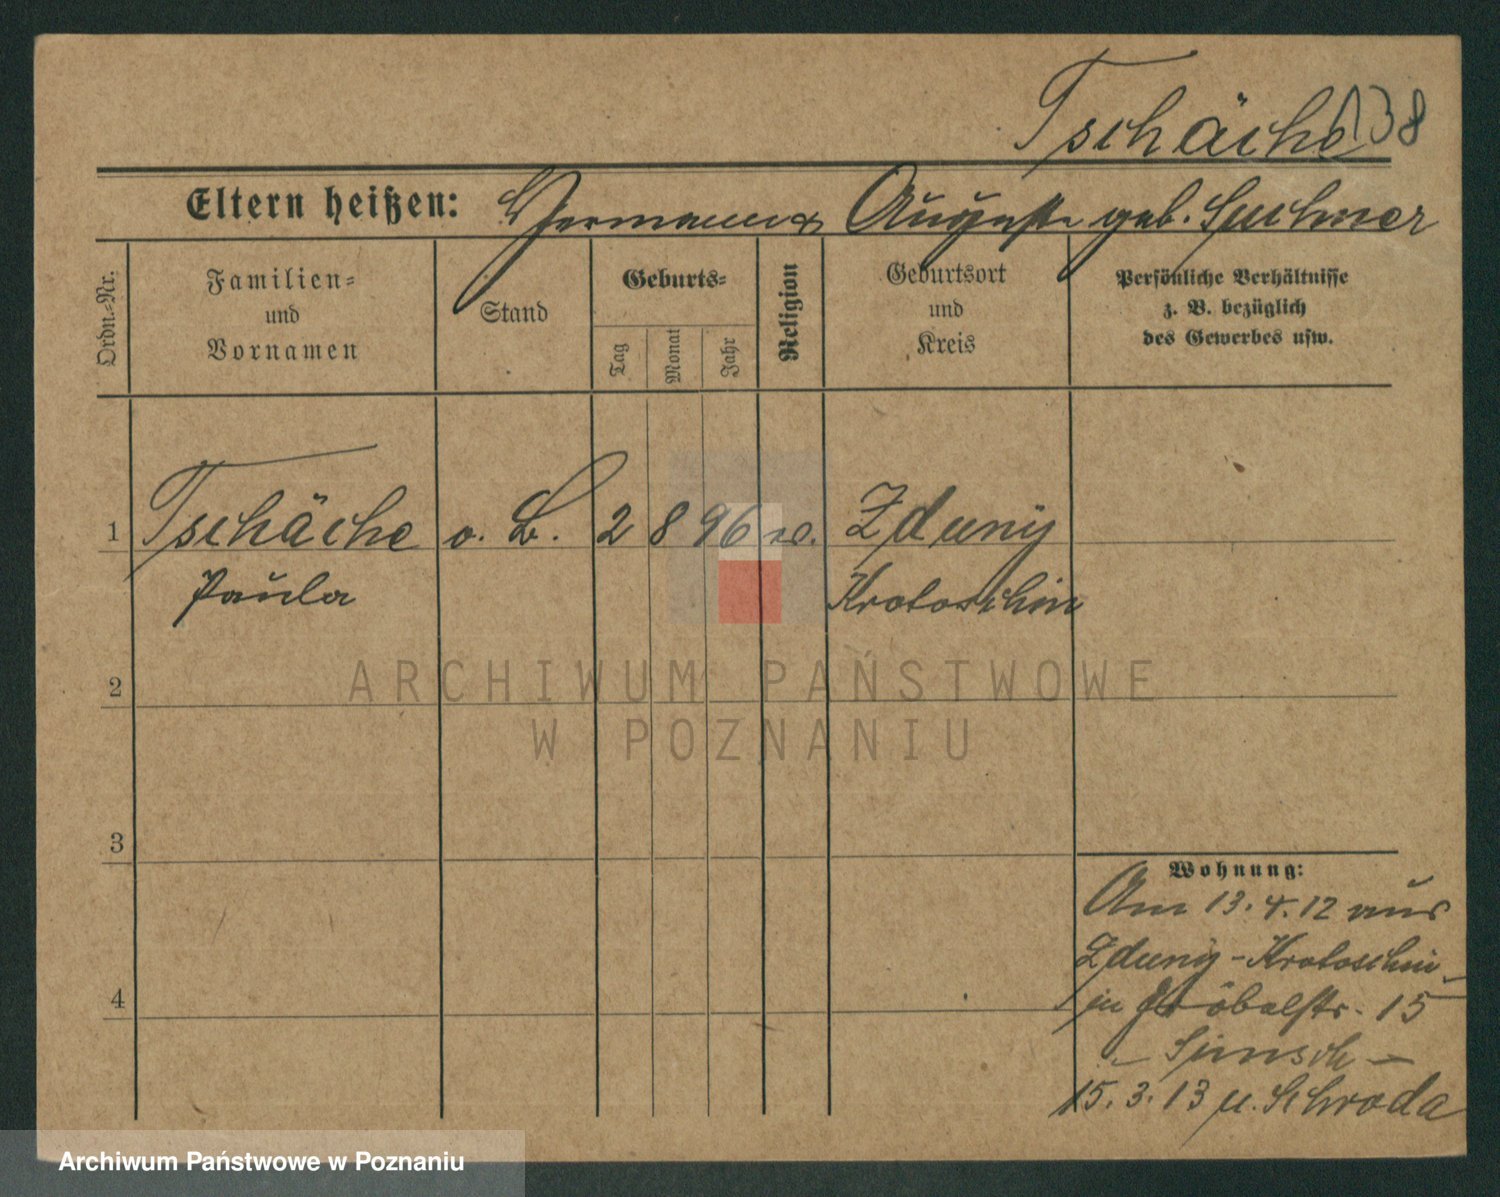 Tschäche 138
Eltern heißen: Hermann & Auguste geb.
Ordn.-Nr.
Familien-
und
Vornamen
Stand
Geburts-
Tag
Monat
Jahr
Religion
Geburtsort
und
Kreis
Persönliche Verhältnisse
z. B. bezüglich
des Gewerbes usw.
1 Tschäche o. B. 2 8 96 Zduny
Paula Krotoschin
2
3
4
Wohnung:
Am 13.4.12 aus
Zduny-Krotoschin
in Fröbelstr. 15
15.3.13 n. Schroda
ARCHIWUM PAŃSTWOWE
W POZNANIU
Archiwum Państwowe w Poznaniu